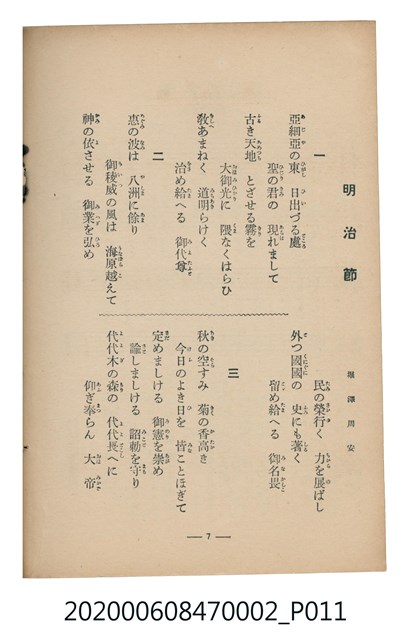 明治節
堀澤周安
一
亞細亞の東 日出づる處
聖の君の 現れまして
古き天地 とざせる霧を
大御光に 隈なくはらひ
敎あまねく 道明らけく
治め給へる 御代尊
二
惠の波は 八洲に餘り
御稜威の風は 海原越えて
神の依させる 御業を弘め
民の榮行く 力を展ばし
外つ國國の 史にも著く
留め給へる 御名畏
三
秋の空すみ 菊の香高き
今日のよき日を 皆ことほぎて
定めましける 御憲を崇め
諭しましける 詔勅を守り
代代木の森の 代代長へに
仰ぎ奉らん 大帝
— 7 —
202000608470002_P011